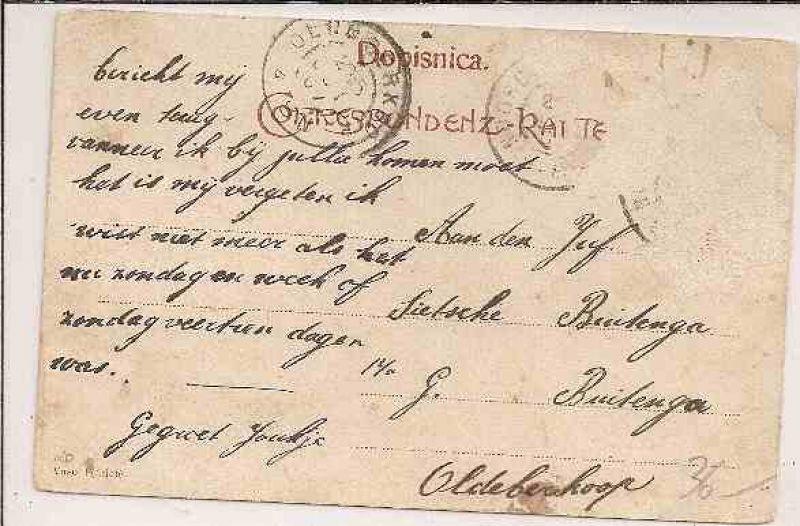 Dopisnica.
CORRESPONDENZ-KARTE
bericht mij
even terug-
wanneer ik bij jullie komen moet
het is mij vergeten ik
wist niet meer als het
nu zondag en week of
zondag veertien dagen
was.
Gegroet Joukje
Aan den Juf
Sietsche Buitenga
G. Buitenga
Oldeberkoop
36